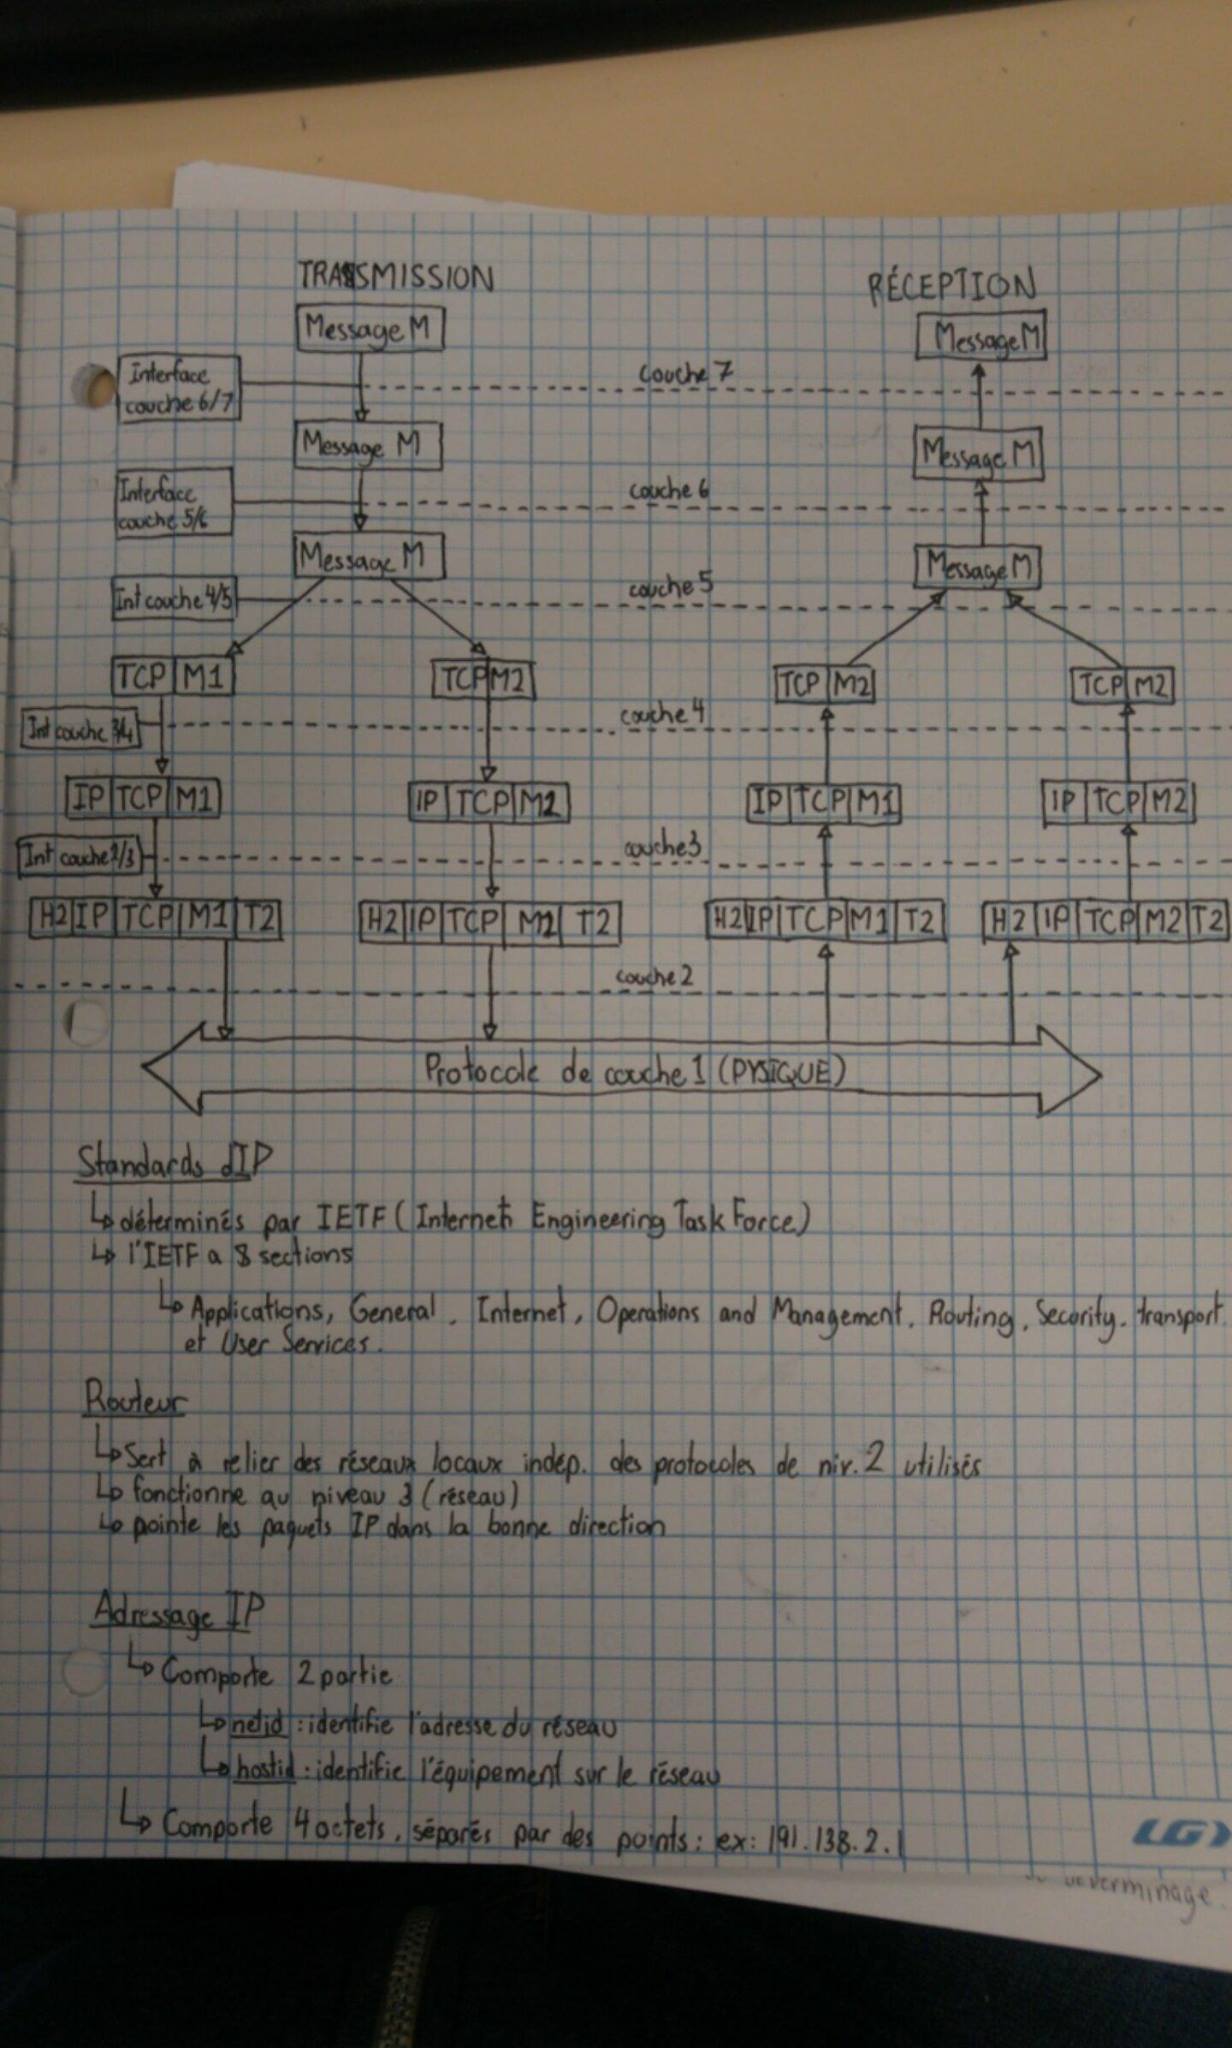 TRANSMISSION RÉCEPTION
Message M Message M
Interface couche 7
couche 6/7
Message M Message M
Interface couche 6
couche 5/6
Message M Message M
Int couche 4/5 couche 5
TCP M1 TCP M2 TCP M2 TCP M2
Int couche 3/4 couche 4
IP TCP M1 IP TCP M2 IP TCP M1 IP TCP M2
Int couche 2/3 couche 3
H2 IP TCP M1 T2 H2 IP TCP M2 T2 H2 IP TCP M1 T2 H2 IP TCP M2 T2
couche 2
Protocole de couche 1 (PYSIQUE)
Standards d'IP
↳ déterminés par IETF (Internet Engineering Task Force)
↳ l'IETF a 8 sections
↳ Applications, General, Internet, Operations and Management, Routing, Security, transport
et User Services.
Routeur
↳ Sert à relier des réseaux locaux indep. des protocoles de niv. 2 utilisés
↳ fonctionne au niveau 3 (réseau)
↳ pointe les paquets IP dans la bonne direction
Adressage IP
↳ Comporte 2 partie
↳ netid : identifie l'adresse du réseau
↳ hostid : identifie l'équipement sur le réseau
↳ Comporte 4 octets, séparés par des points : ex: 191.138.2.1
LG